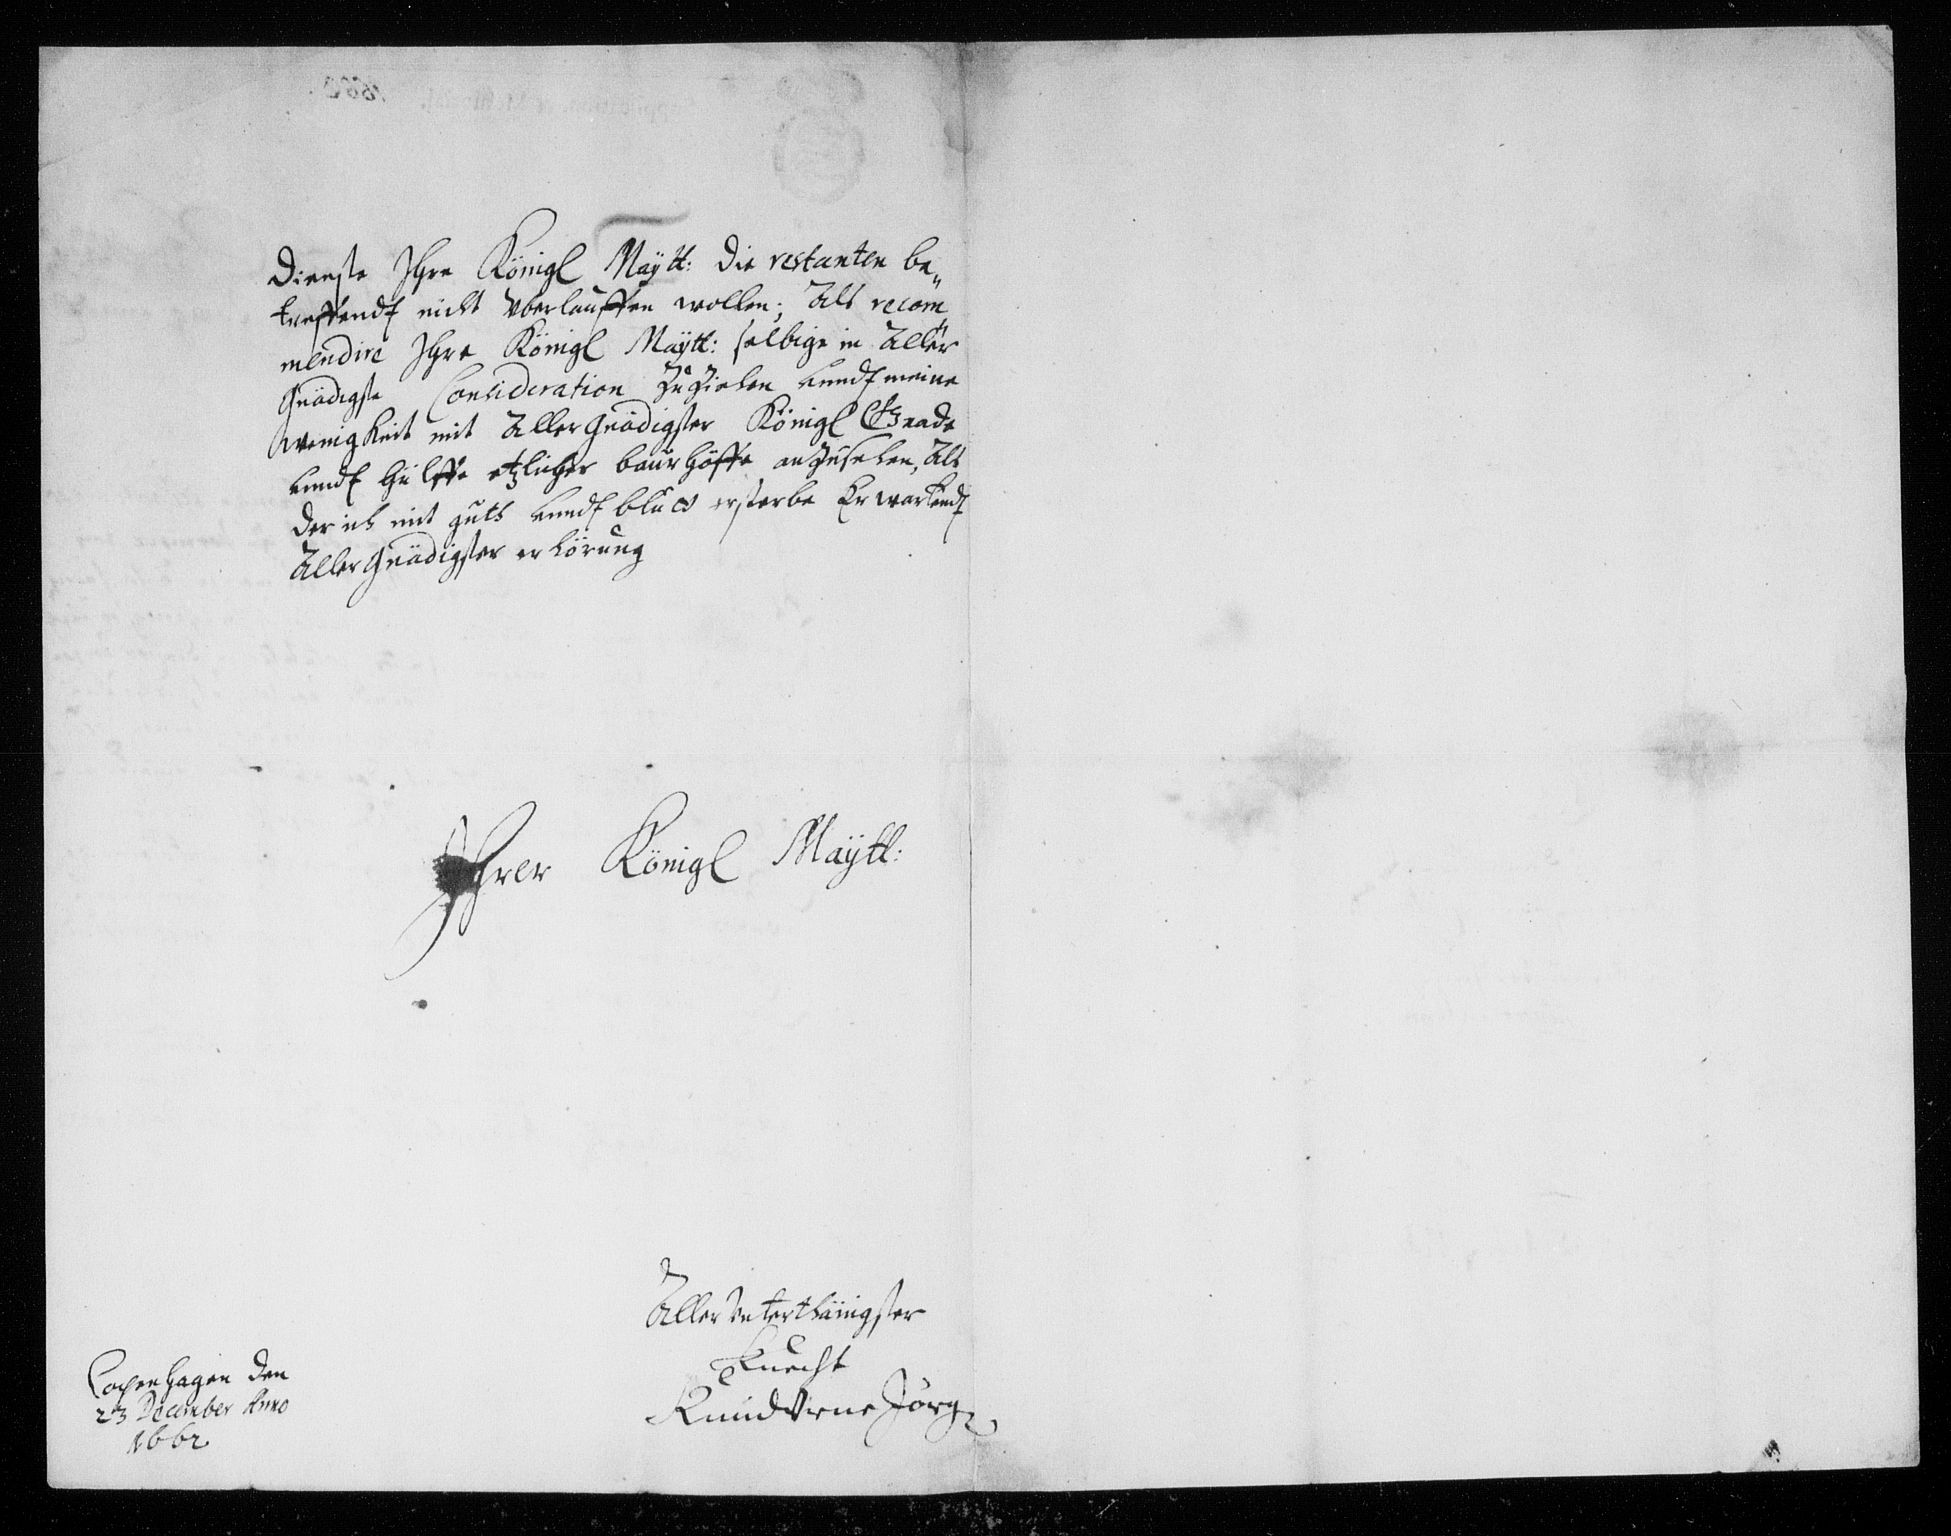 Dienste Ihre Königl Maÿtt: die restanten be„
treffendt nicht vberlauffen wollen; Alß recom„
mendire Ihre Königl Maÿtt: selbige in Aller
Gnädigste Consideration zu ziehen vnndt meine
wenigkeit mit AllerGnädigster Königl Gnade
vnndt hülffe etzlicher baurhöffe anzusehen, Alß
der ich mit guth vnndt blud ersterbe Erwartendt
AllerGnädigster erhörung
Ihrer Königl Maÿtt:
AllerVnterthänigster
Knecht
Knud Vrne Jörg
Copenhagen den
23 December Anno
1662